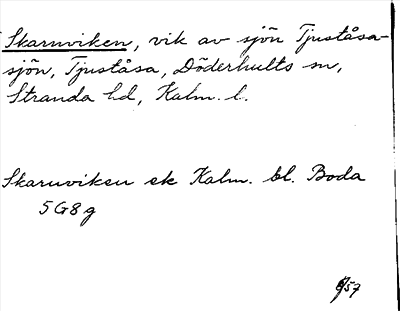 Skarnviken, vik av sjön Tjuståsa-
sjön, Tjuståsa, Döderhults sn,
Stranda hd, Kalm. l.
Skarnviken ek Kalm. bl. Boda
5G8g
57